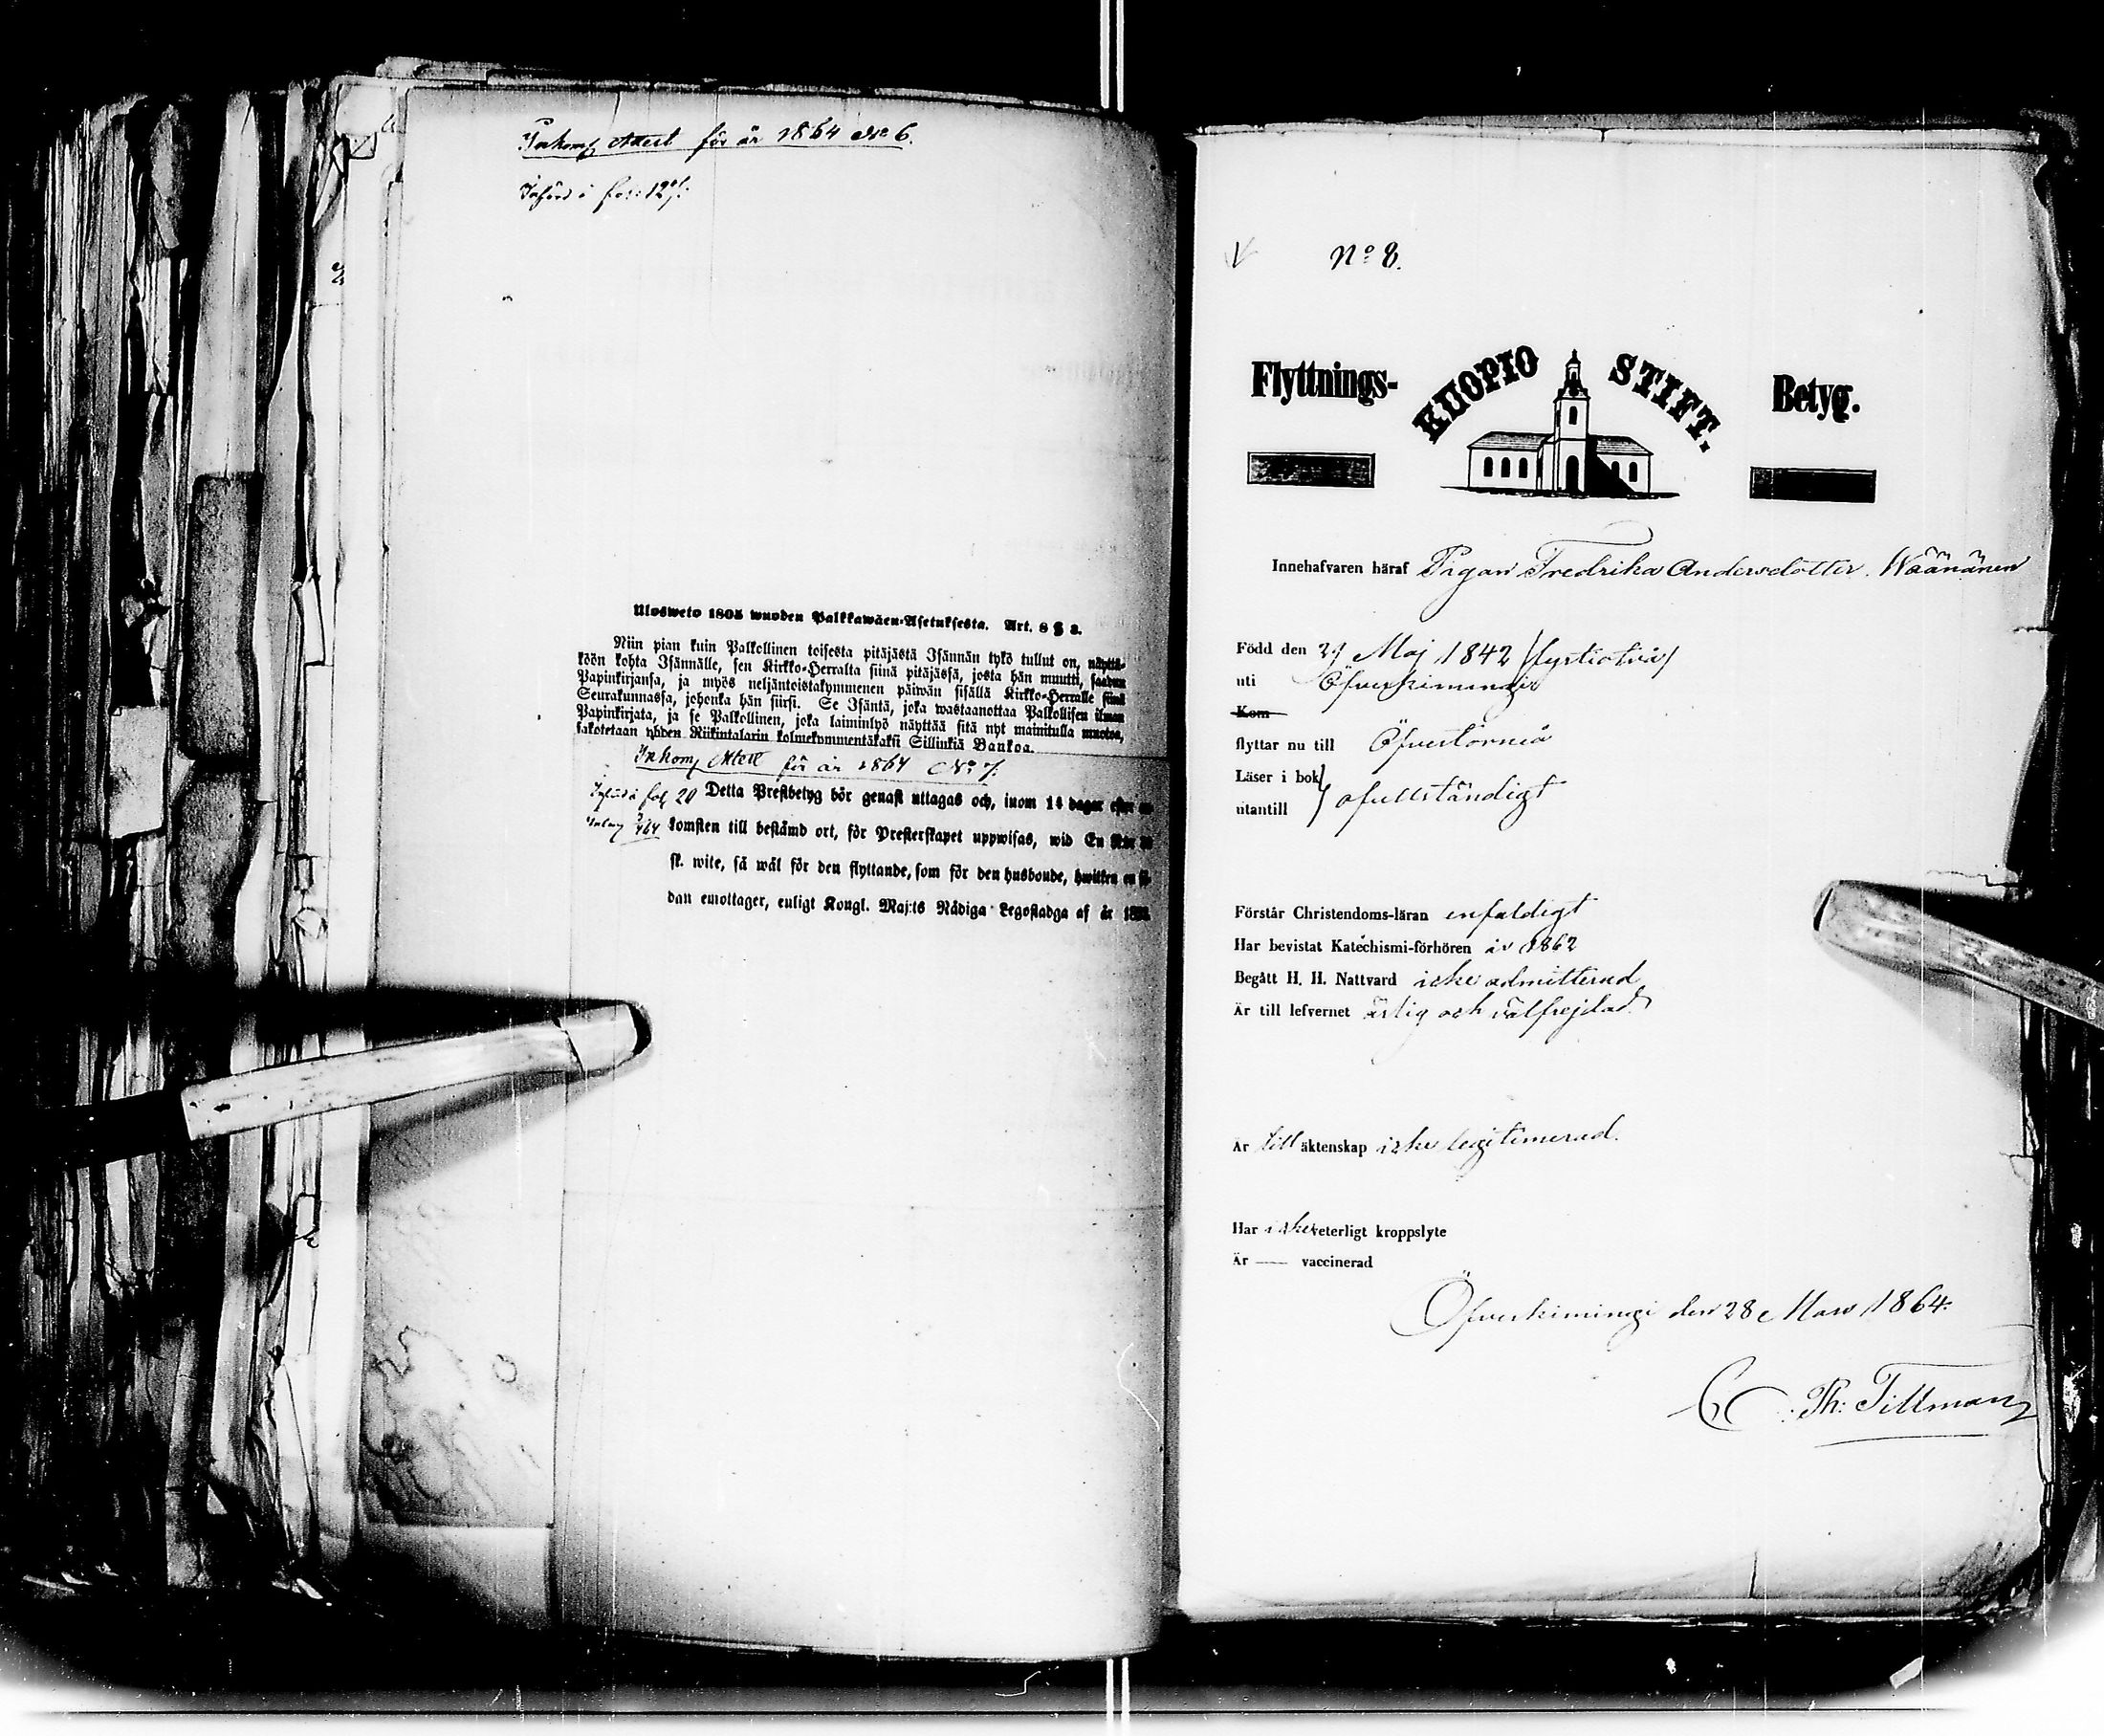 Inkomf Attest för år 1864 No 6.
Införd i fol: 127.
Ulosweto 1805 wuoden Palkkawäen-Asetuksesta. Art. 8 § 3.
Niin pian kuin Palkollinen toisesta pitäjästä Isännän tykö tullut on, näyttä-
köön kohta Isännälle, sen Kirkko-Herralta siinä pitäjässä, josta hän muutti, saadun
Papinkirjansa, ja myös neljäntoistakymmenen päiwän sisällä Kirkko-Herralle siinä
Seurakunnassa, johonka hän siirsi. Se Isäntä, joka wastaanottaa Palkollisen ilman
Papinkirjata, ja se Palkollinen, joka laiminlyö näyttää sitä nyt mainitulla muotoa,
sakotetaan yhden Riikintalarin kolmekymmentäkaksi Sillinkiä Bankoa.
Inkomf Attest för år 1864 No 7.
Införd i fol 20 Detta Prestbetyg bör genast uttagas och, inom 14 dagar efter
komsten till bestämd ort, för Presterskapet uppwisas, wid En
sk. wite, så wäl för den flyttande, som för den husbonde, hwilken en
dan emottager, enligt Kongl. Maj:ts Nådiga Legostadga af år
No 8.
Flyttnings- KUOPIO STIFT. Betyg.
Innehafvaren häraf Pigan Fredrika Andersdotter Wäänänen
Född den 29 Maj 1842 /fyrtiotvå/
uti Öfverkimingi
Kom
flyttar nu till Öfvertorneå
Läser i bok
utantill } ofullständigt
Förstår Christendoms-läran enfaldigt
Har bevistat Katechismi-förhören år 1862
Begått H. H. Nattvard icke admitterad
Är till lefvernet ärlig och välfrejdad
Är till äktenskap icke legitimerad.
Har icke veterligt kroppslyte
Är — vaccinerad
Öfverkimingi den 28 Mars 1864.
C. Th: Tillman